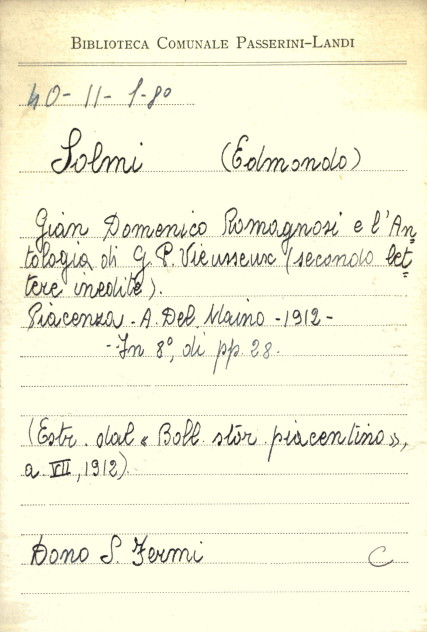 BIBLIOTECA COMUNALE PASSERINI-LANDI
40-11-1-8º
Solmi (Edmondo)
Gian Domenico Romagnosi e l'An=
tologia di G. P. Vieusseux (secondo let=
tere inedite).
Piacenza - A. Del Maino - 1912 -
- In 8°, di pp. 28.
(Estr. dal « Boll. stor. piacentino »,
a. VII, 1912).
Dono S. Fermi C